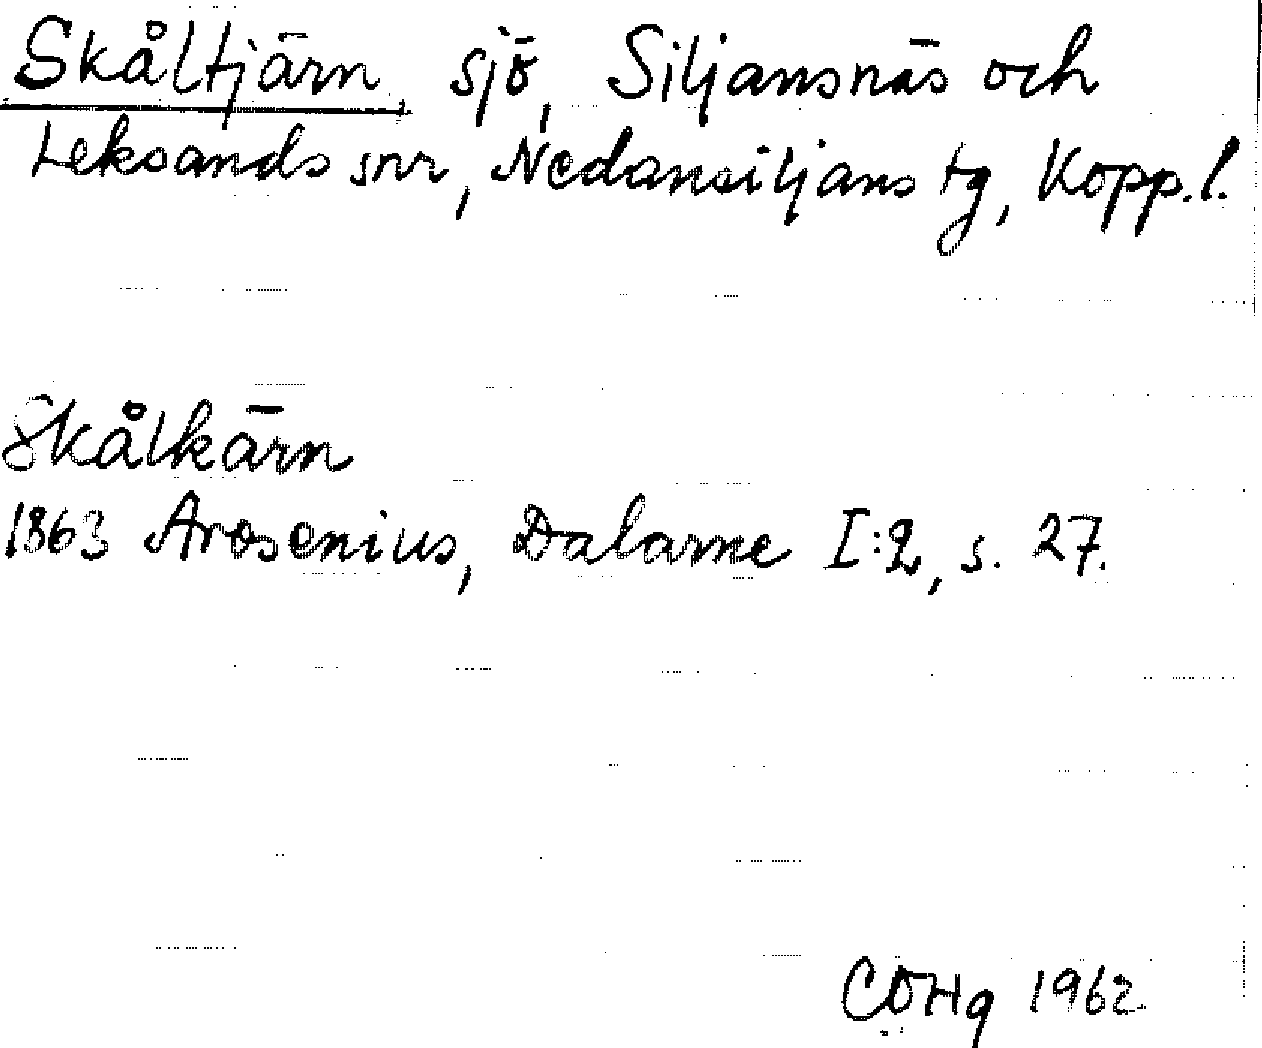 Skåltjärn, sjö, Siljansnäs och
Leksands snr, Nedansiljans tg, Kopp.l.
Skålkärn
1863 Arosenius, Dalarne I:2, s. 27.
COHg 1962